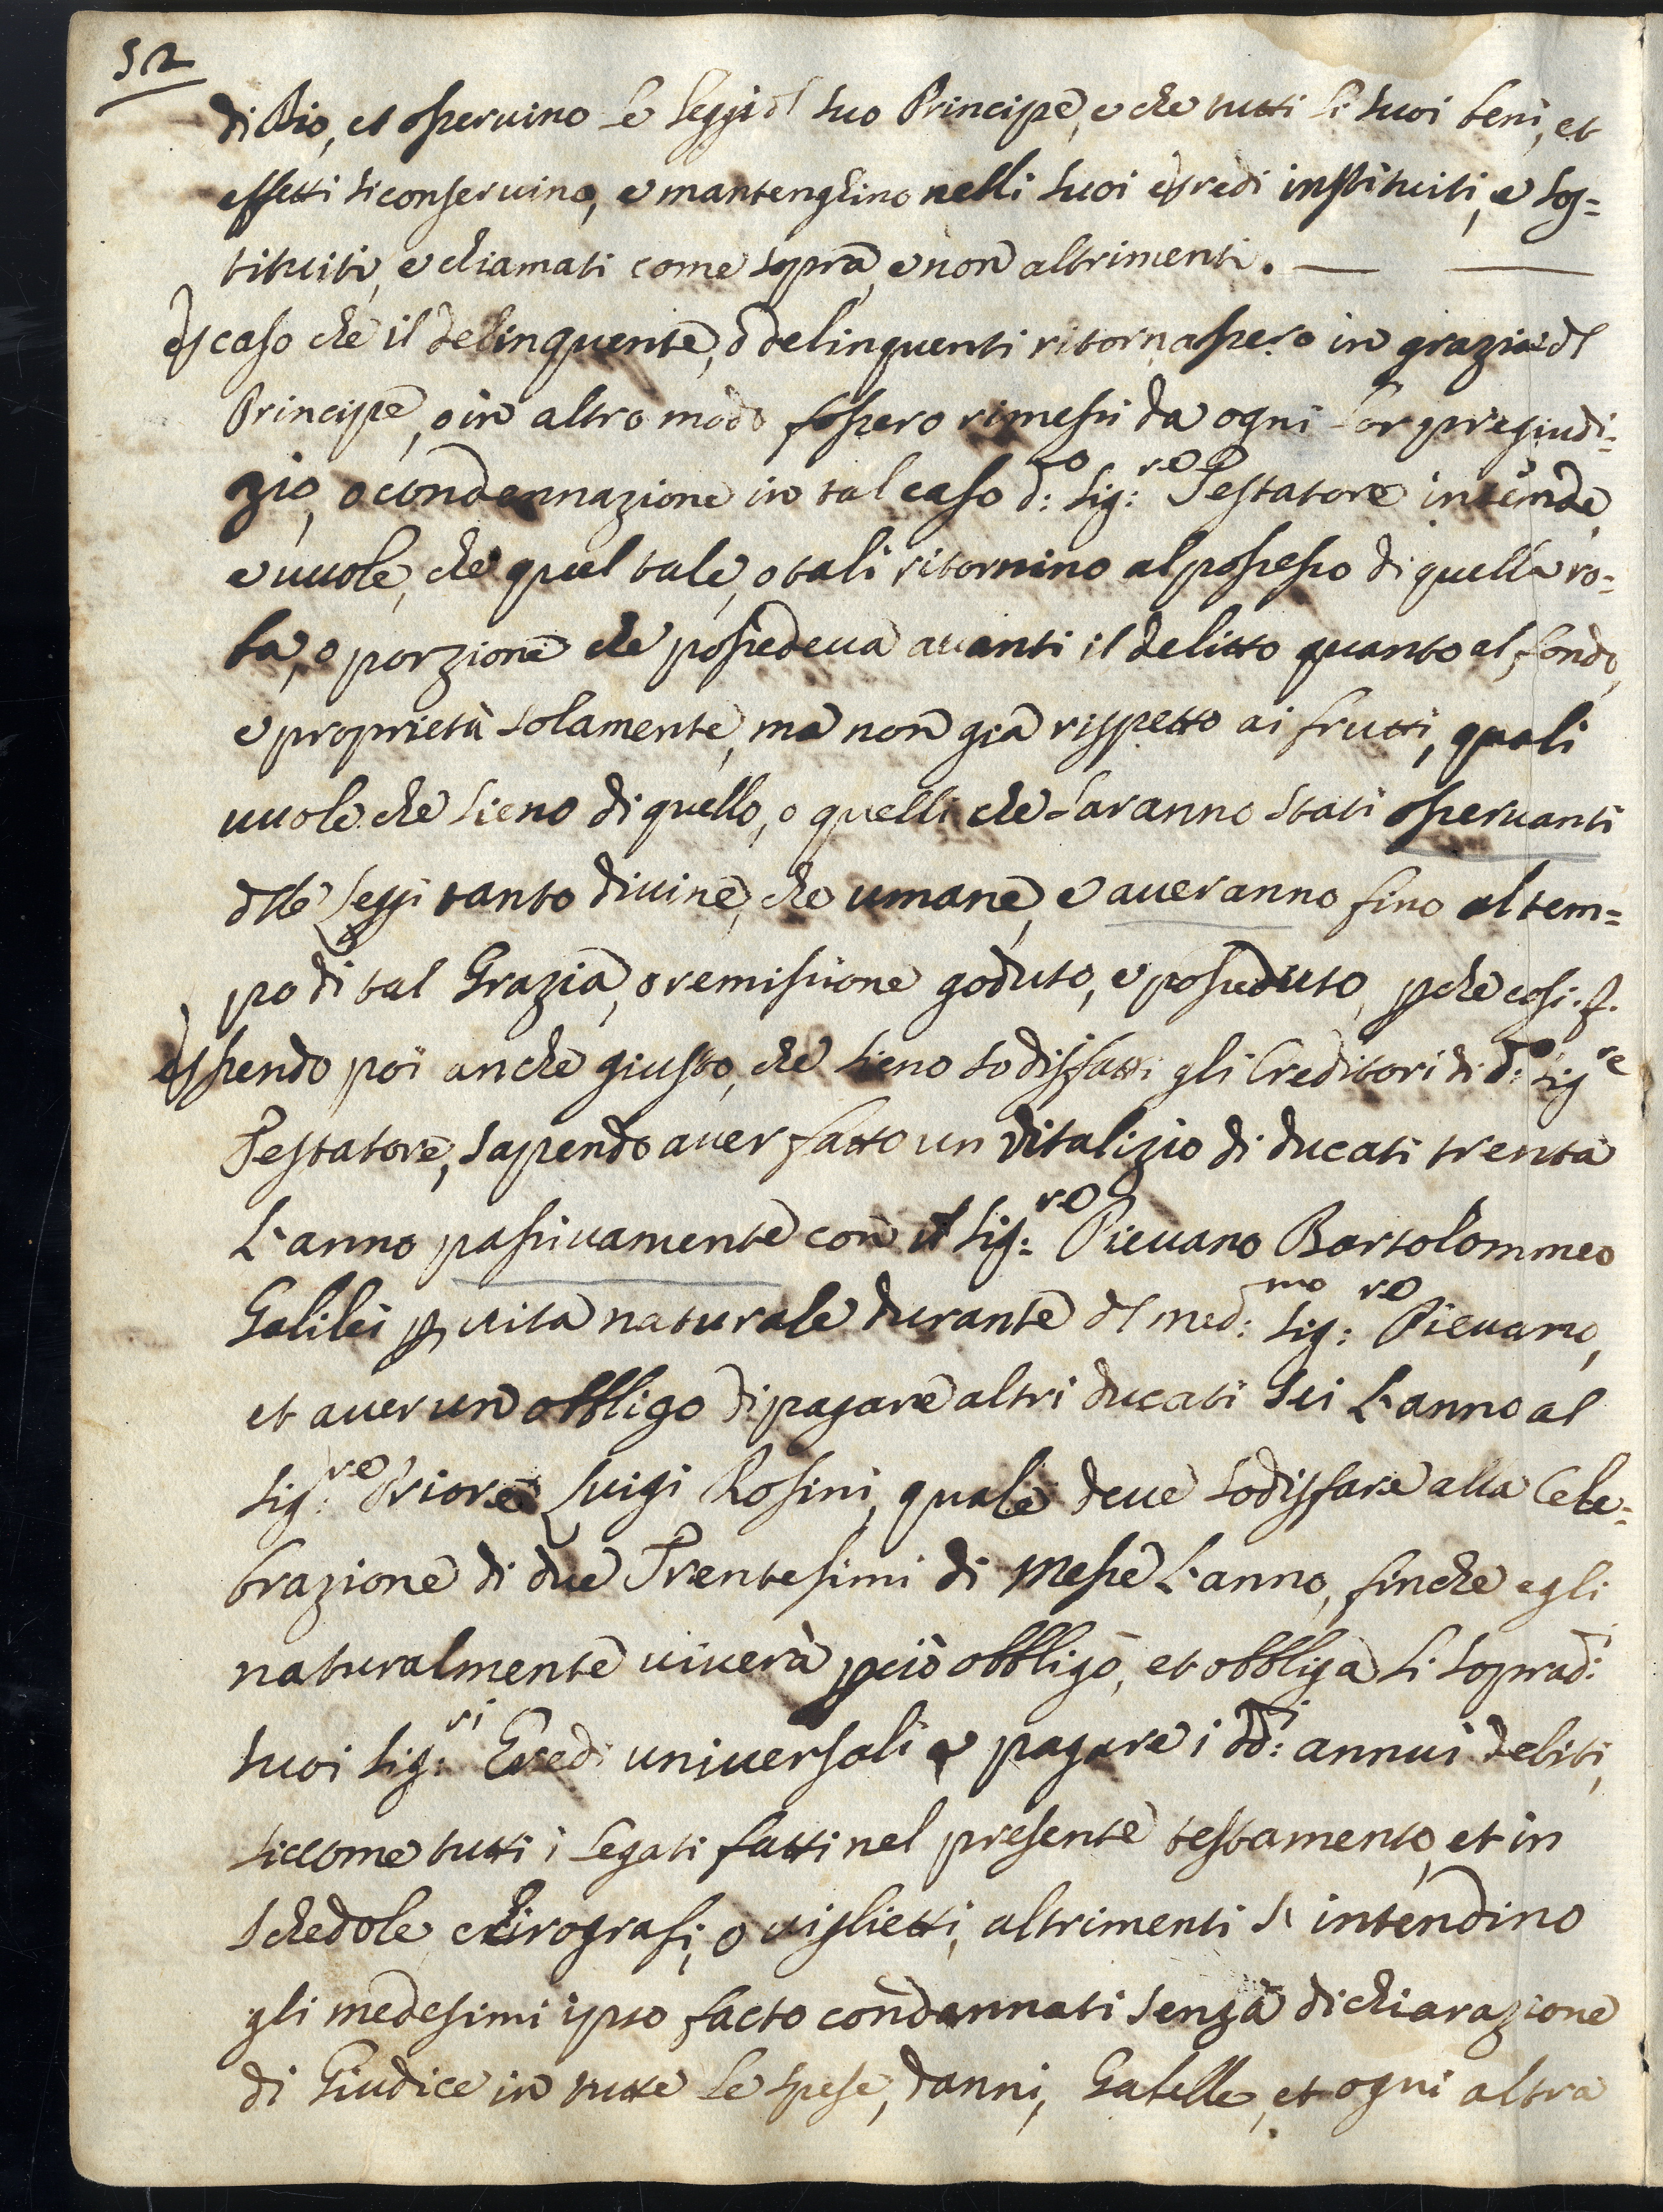 52
di Dio, et osseruino le leggi del suo Principe, e che tutti li suoi beni, et
effetti si conseruino, e mantenghino nelli suoi eredi instituiti, e sos=
tituiti, e chiamati come sopra, e non altrimenti. — —
E caso che il delinquente, ò delinquenti ritornassero in grazia del
Principe, o in altro modo fossero rimessi da ogni lor pregiudi=
zio, o condennazione in tal caso d:to Sig:re Testatore intende,
e uuole, che quel tale, o tali ritornino al possesso di quella ro=
ba, o porzione che possedeua auanti il delitto quanto al fondo,
e proprietà solamente, ma non già rispetto ai frutti, quali
uuole che sieno di quello, o quelli che saranno stati osseruanti
delle Leggi tanto diuine, che umane, e aueranno fino al tem=
po di tal Grazia, o remissione goduto, e posseduto, pche cosi. f.
Essendo poi anche giusto, che sieno sodisfatti gli Creditori di d:to Sig:re
Testatore, sapendo auer fatto un Vitalizio di ducati trenta
L'anno passiuamente con il Sig:re Pieuano Bartolommeo
Galilei p uita naturale durante del med:mo Sig:re Pieuano,
et auer un obbligo di pagare altri ducati sei L'anno al
Sig:re Priore Luigi Rosini, quale deue sodisfare alla Cele=
brazione di due Trentesimi di Messe L'anno, finche egli
naturalmente uiuerà pciò obbligò, et obbliga li soprad:i
suoi Sig:ri Eredi uniuersali a pagare i dd:i annui debiti,
siccome tutti i Legati fatti nel presente testamento, et in
schedole, chirografi, o uiglietti, altrimenti s' intendino
gli medesimi ipso facto condannati senza dichiarazione
di Giudice in tutte le spese, danni, Gabelle, et ogni altra